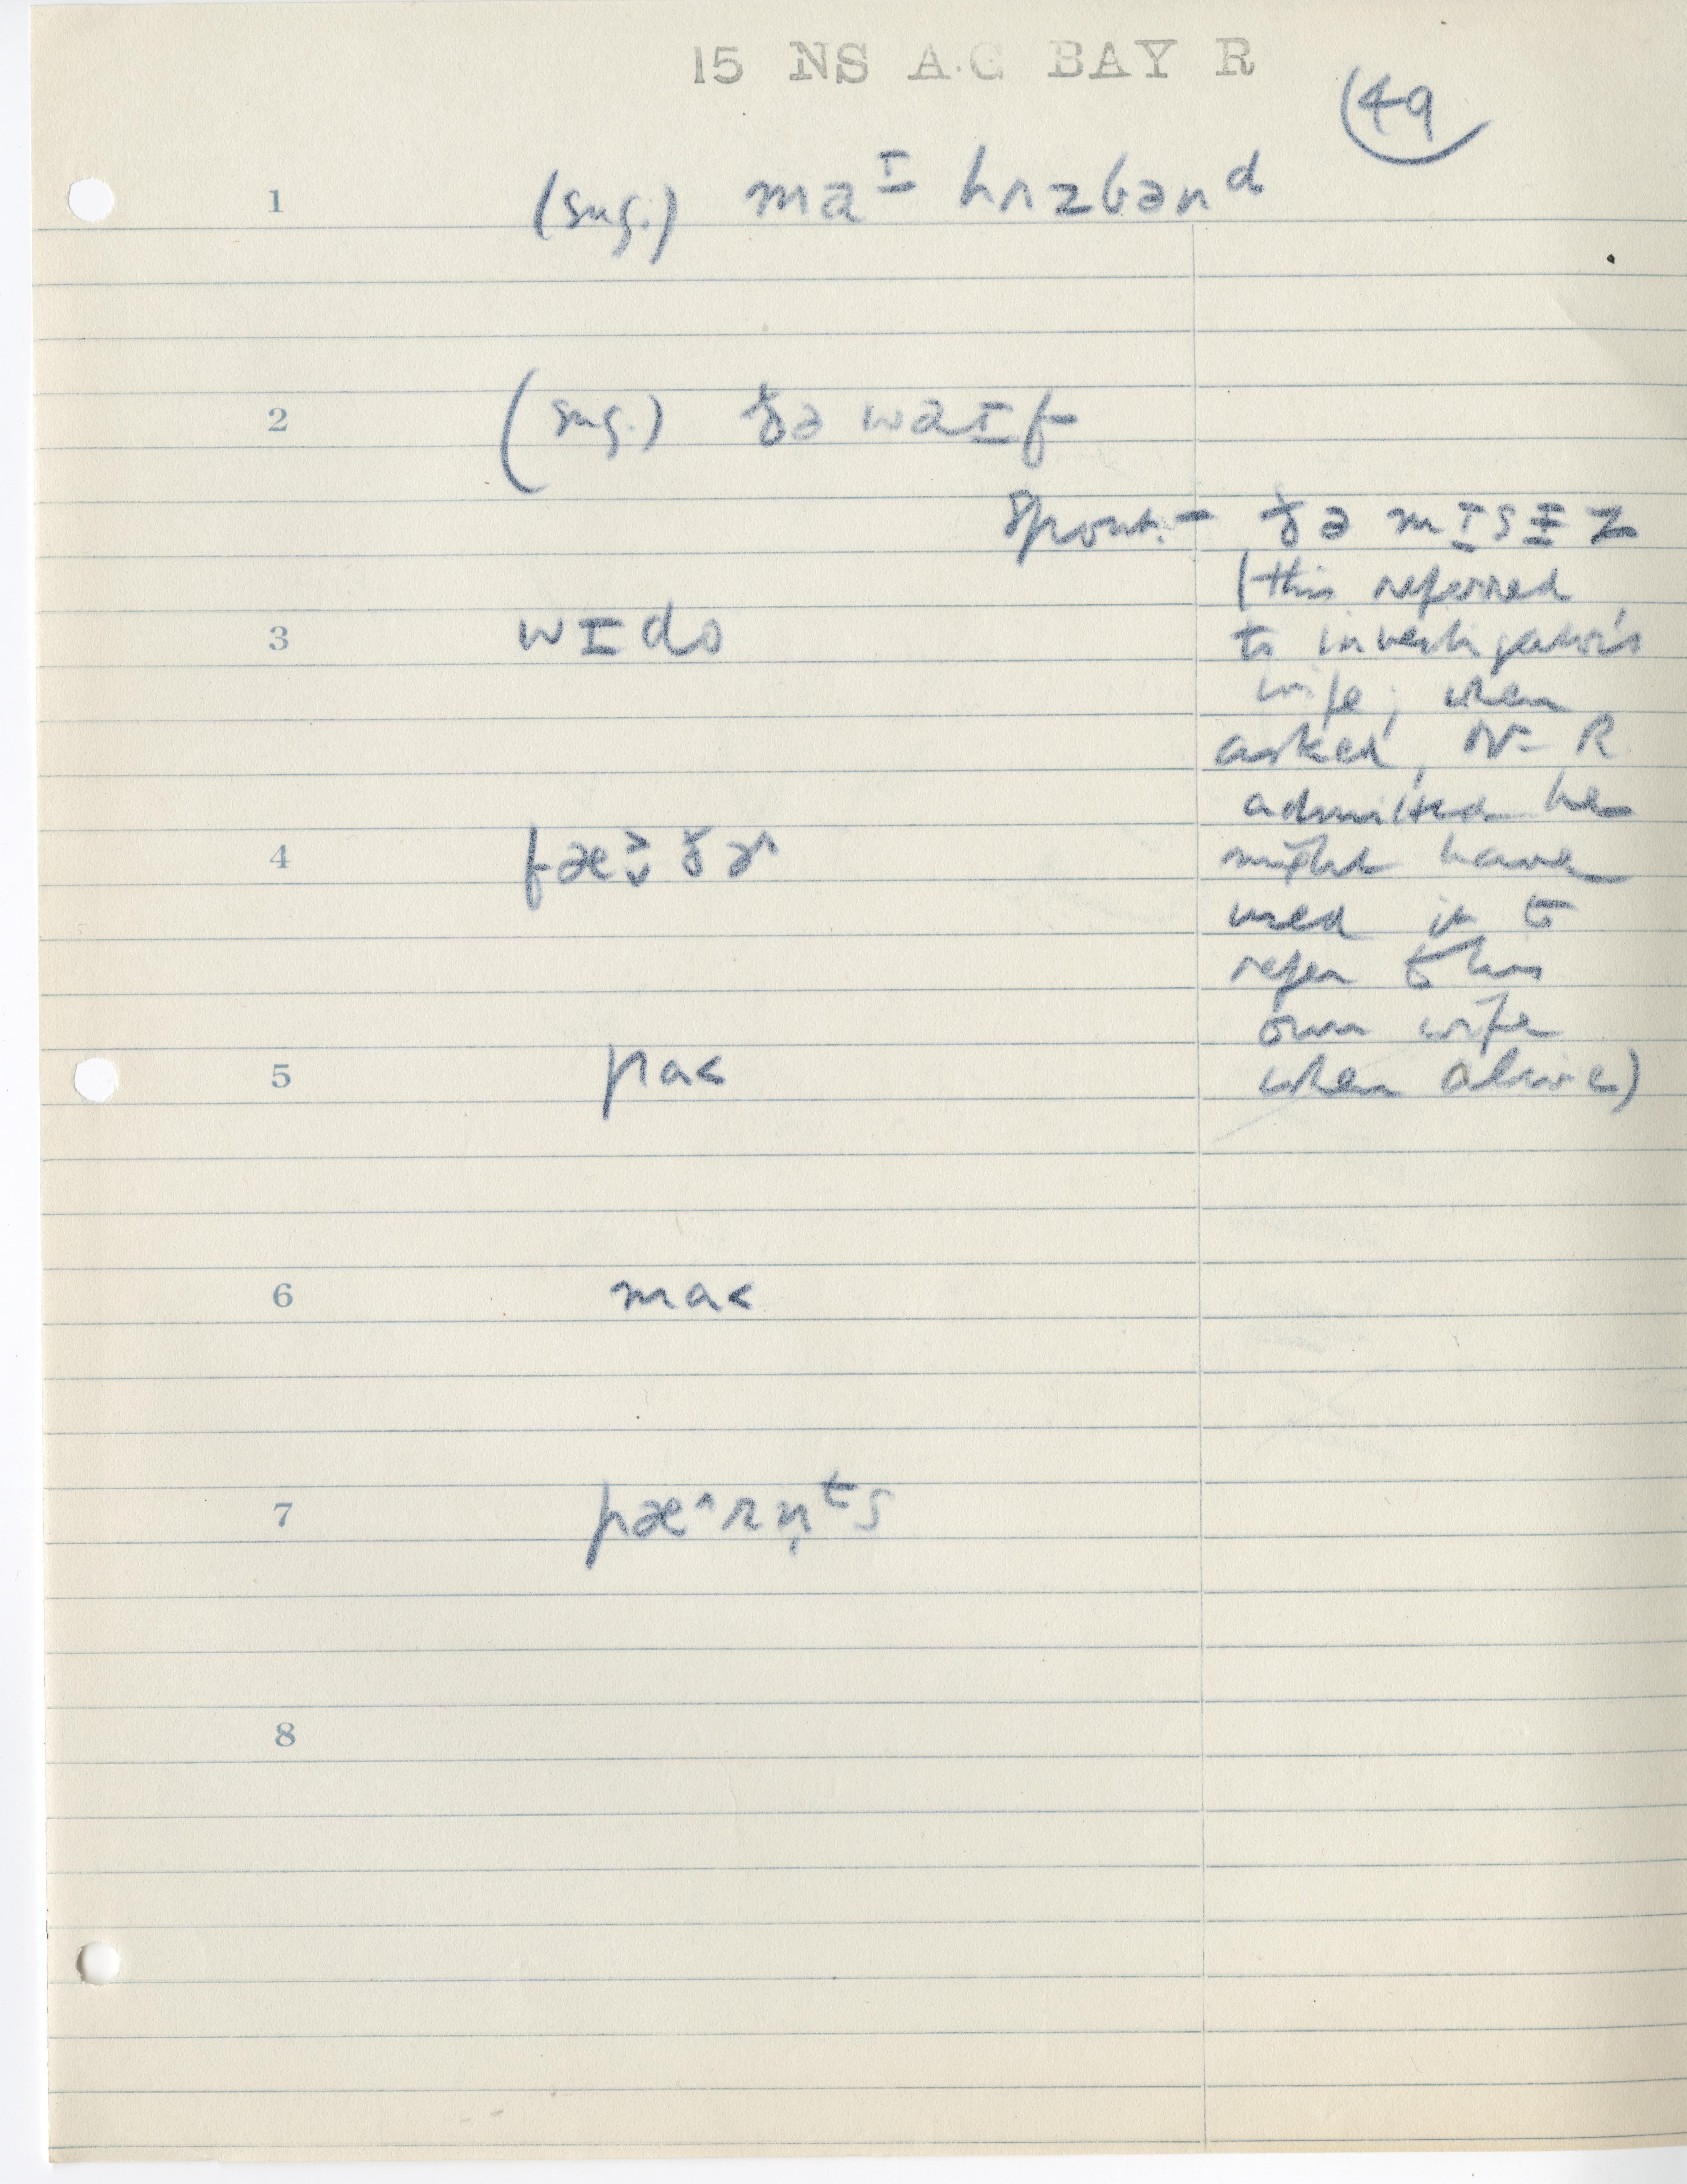 15 NS A.G BAY R
49
1 (sug.) maɪ hʌzbənᵈ
2 (sug.) ðə waɪf
Spont. – ðə mɪsɨz
(this referred
3 wɪdo
to investigator's
wife; when
asked, N– R
admitted he
4 fæ˃̬ðɚ
might have
used it to
refer to his
own wife
5 pa˂
when alive)
6 ma˂
7 pæ^rn̩ᵗs
8